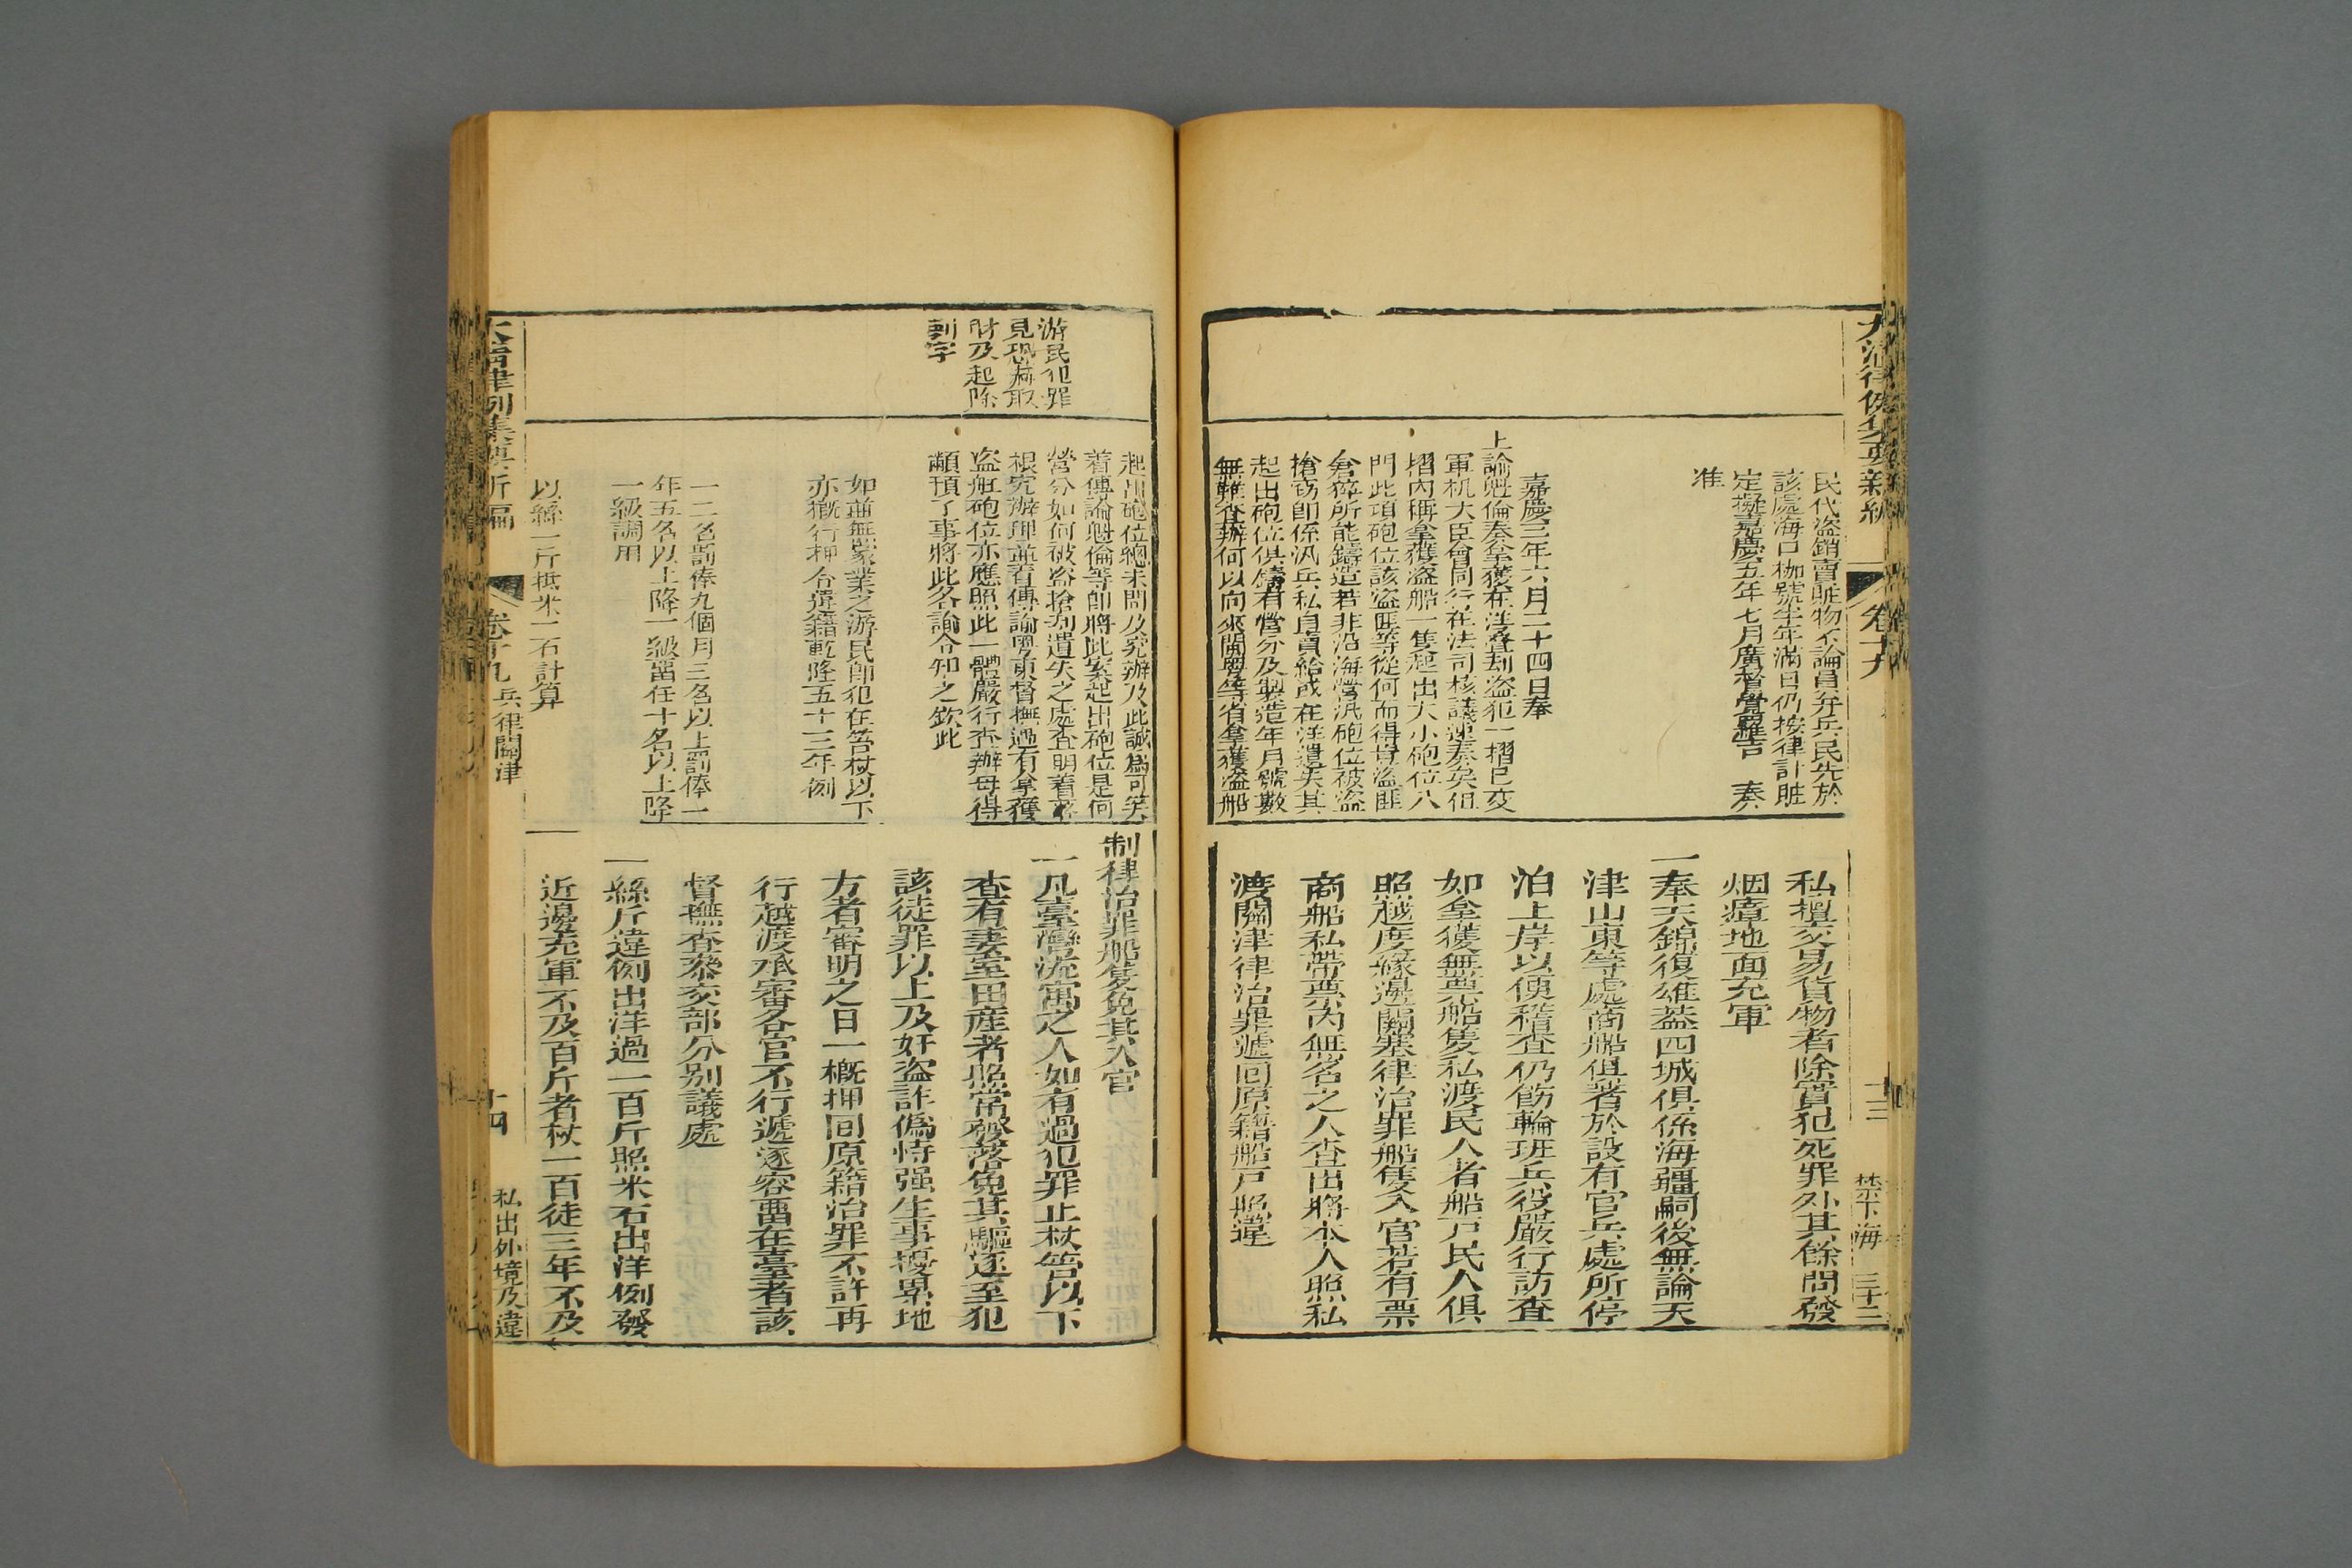 大清律例集要新編
卷十九
十三
禁下海
三十二
民代盗銷賣賍物不論員弁兵民先於
該處海口枷號半年滿日仍按律計賍
定擬嘉慶五年七月廣督覺羅吉 奏
准
嘉慶三年六月二十四日奉
上諭魁倫奏拿獲在洋疊刼盗犯一摺已交
軍机大臣會同行在法司核議速奏矣但
摺內稱拿獲盗船一隻起出大小砲位八
門此項砲位該盗匪等從何而得豈盗匪
倉猝所能鑄造若非沿海營汛砲位被盗
搶窃卽係汛兵私自賣給或在洋遺失其
起出砲位俱鑄有營分及製造年月號數
無難查辦何以向來閩粵等省拿獲盗船
私擅交易貨物者除實犯死罪外其餘問發
烟瘴地面充軍
一奉天錦復雄葢四城俱係海疆嗣後無論天
津山東等處商船俱著於設有官兵處所停
泊上岸以便稽查仍飭輪班兵役嚴行訪查
如拿獲無票船隻私渡民人者船戸民人俱
照越度緣邊關塞律治罪船隻入官若有票
商船私帶票內無名之人查出將本人照私
渡關津律治罪遞回原籍船戸照違
游民犯罪
見恐嚇取
財及起除
刺字
起出砲位總未問及究辦及此誠爲可笑
着傳諭魁倫等卽將此案起出砲位是何
營分如何被盗搶刼遺失之處查明着落
根究辦理並著傳諭粵東督撫遇有拿獲
盗艇砲位亦應照此一體嚴行查辦毋得
顢頇了事將此各諭令知之欽此
如並無家業之游民卽犯在笞杖以下
亦槪行押令還籍乾隆五十三年例
一二名罰俸九個月三名以上罰俸一
年五名以上降一級畱任十名以上降
一級調用
以絲一斤抵米二石計算
制律治罪船隻免其入官
一凡臺灣流寓之人如有過犯罪止杖笞以下
查有妻室田産者照常發落免其驅逐至犯
該徒罪以上及奸盗詐僞恃强生事擾累地
方者審明之日一槪押回原籍治罪不許再
行越渡承審各官不行遞逐容畱在臺者該
督撫查叅交部分別議處
一絲斤違例出洋過一百斤照米石出洋例發
近邊充軍不及百斤者杖一百徒三年不及
大清律例集要新編
卷十九
兵律關津
十四
私出外境及違